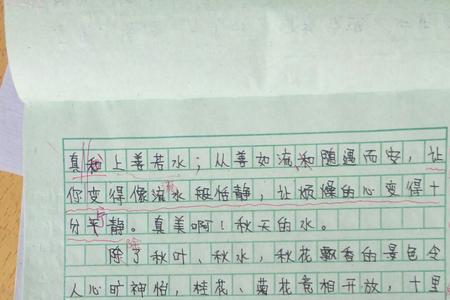 真和上善若水；从善如流和随遇而安，让
你变得像流水般恬静，让烦燥的心变得十
分平静。真美啊！秋天的水。
除了秋叶、秋水，秋花飘香的景色令
人心旷神怡，桂花、菊花竟相开放，十里